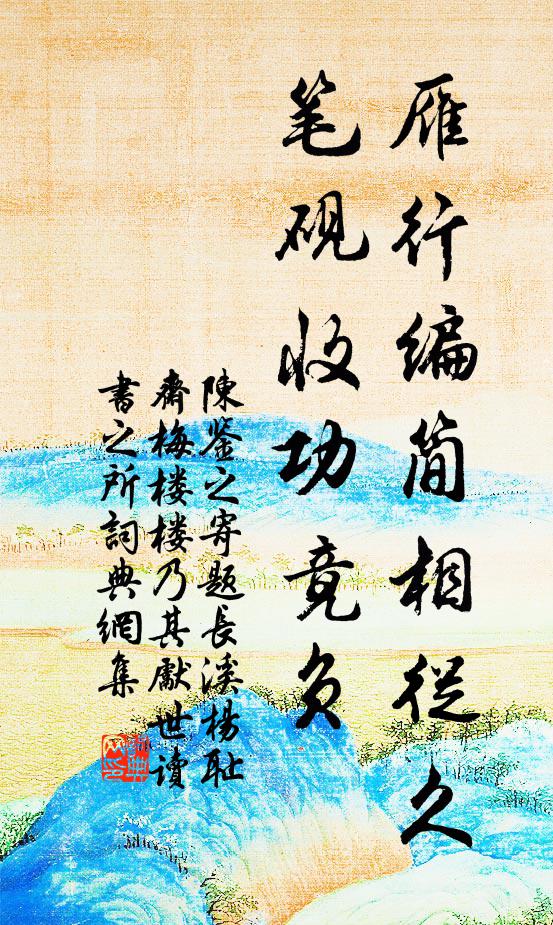 雁行编简相從久
笔砚收功竟负
陳鉴之寄题长溪楊耻
齋梅楼楼乃其獻世讀
書之所詞典網集